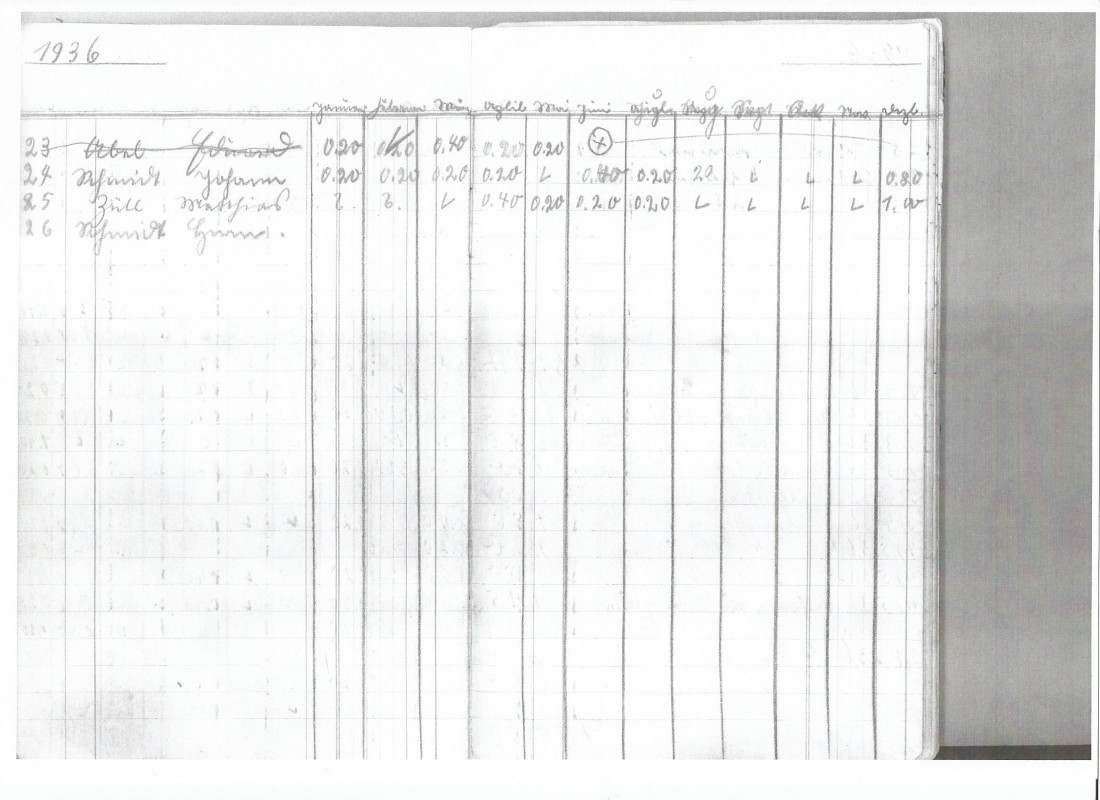 1936
Januar Februar März April Mai Juni Sept Nov. Dezb.
23 Abel Eduard 0.20 0.20 0.40 0.20 0.20
24 Schmidt Johann 0.20 0.20 0.20 0.20 L 0.40 0.20 20 L L L 0.80
25 Züll Matthias L 0.40 0.20 0.20 0.20 L L L L 1.00
26 Schmidt